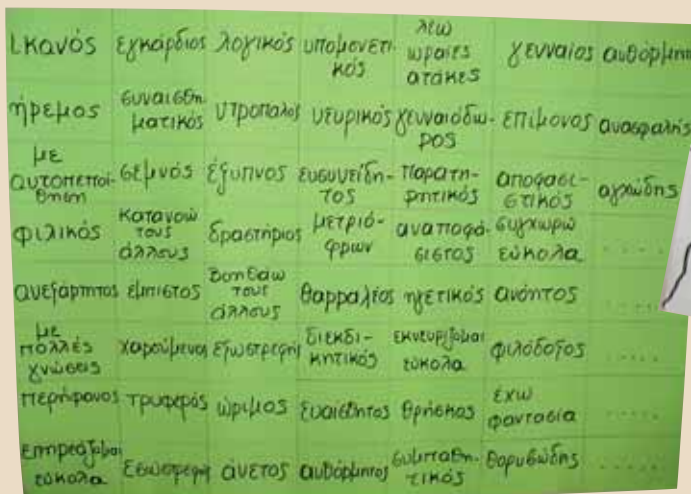 ικανός εγκάρδιος λογικός υπομονετικός λέω ωραίες ατάκες γενναίος αυθόρμητ
ήρεμος συναισθηματικός ντροπαλός νευρικός γενναιόδωρος επίμονος ανασφαλής
με αυτοπεποίθηση σεμνός έξυπνος ευσυνείδητος παρατηρητικός αποφασιστικός αγχώδης
φιλικός κατανοώ τους άλλους δραστήριος μετριόφρων αναποφάσιστος συγχωρώ εύκολα .....
ανεξάρτητος έμπιστος βοηθάω τους άλλους θαρραλέος ηγετικός ανόητος .....
με πολλές γνώσεις χαρούμενος εξωστρεφής διεκδικητικός εκνευρίζομαι εύκολα φιλόδοξος .....
περήφανος τρυφερός ώριμος ευαίσθητος θρήσκος έχω φαντασία .....
επηρεάζομαι εύκολα εσωστρεφή άνετος αυθόρμητος συμπαθητικός θορυβώδης .....